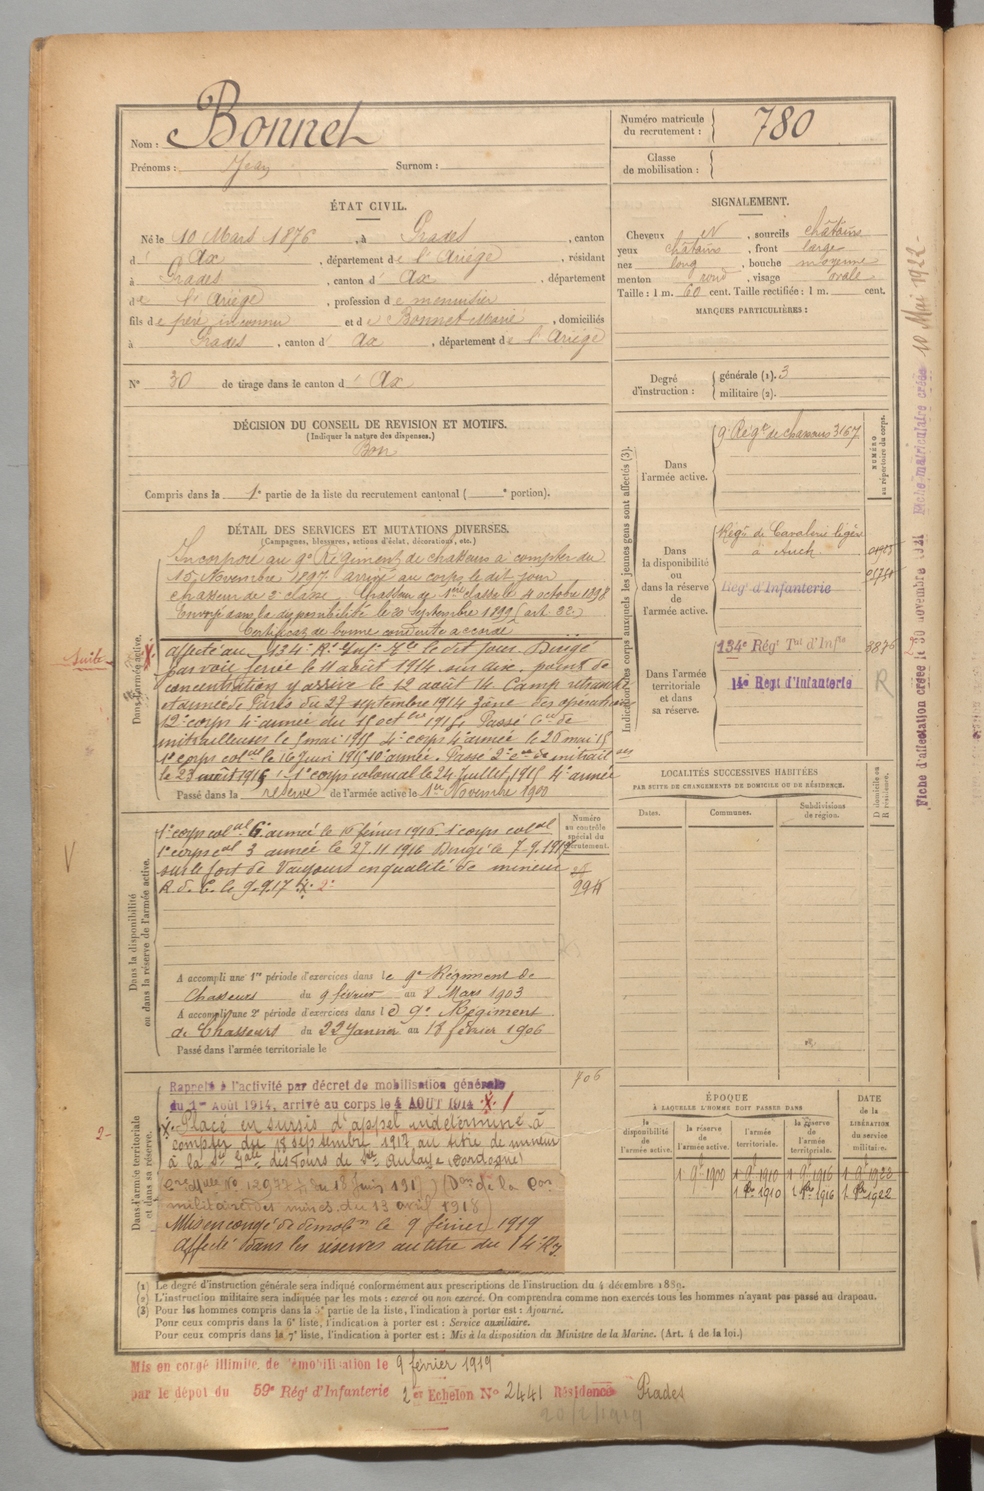 Nom : Bonnet
Prénoms : Jean Surnom :
Numéro matricule du recrutement : 780
Classe de mobilisation :
ÉTAT CIVIL.
Né le 10 Mars 1876, à Prades, canton
d' Ax, département de l'Ariège, résidant
à Prades, canton d' Ax, département
de l'Ariège, profession de menuisier
fils de père inconnu et de Bonnet Marie, domiciliés
à Prades, canton d' Ax, département de l'Ariège
N° 30 de tirage dans le canton d' Ax
SIGNALEMENT.
Cheveux N, sourcils châtains
yeux châtains, front large
nez long, bouche moyenne
menton rond, visage ovale
Taille : 1 m. 60 cent. Taille rectifiée : 1 m. cent.
MARQUES PARTICULIÈRES :
Degré d'instruction : générale (1). 3
militaire (2).
DÉCISION DU CONSEIL DE REVISION ET MOTIFS.
(Indiquer la nature des dispenses.)
Bon
Compris dans la 1e partie de la liste du recrutement cantonal ( e portion).
DÉTAIL DES SERVICES ET MUTATIONS DIVERSES.
(Campagnes, blessures, actions d'éclat, décorations, etc.)
Dans l'armée active.
Incorporé au 9e Régiment de chasseurs à compter du
15 Novembre 1897 arrivé au corps le dit jour
chasseur de 2e classe. Chasseur de 1ère classe le 4 octobre 1898
Envoyé dans la disponibilité le 20 septembre 1899 (art. 22.)
Certificat de bonne conduite accordé
Suite
Affecté au 134e R. Inf. Tle le dit jour. Dirigé
par voie ferrée le 11 août 1914 sur son point de
concentration y arrive le 12 août 14. Camp retranché
et armée de Paris du 27 septembre 1914 zone des opérations
12e corps 4e armée du 18 octbre 1914 Passé Cie de
mitrailleuses le 5 mai 1915 4e corps 4e armée le 26 mai 15
1e corps colal le 16 Juin 1915 10e armée. Passé 2e cie de mitrailses
le 23 1916 : 1e corps colonial le 24 Juillet 1915 4e armée
Passé dans la réserve de l'armée active le 1er Novembre 1900
Dans la disponibilité ou dans la réserve de l'armée active.
1e corps colal 6e armée le 16 février 1916 1e corps colal
1e corps cal 3 armée le 27.11.1916 Dirigé le 7.9.1917
sur le fort de Vaujours en qualité de mineur
R. d. C. le 9.9.17 2e
Numéro au contrôle spécial du recrutement.
994
A accompli une 1re période d'exercices dans le 9e Régiment de
Chasseurs du 9 février au 8 Mars 1903
A accompli une 2e période d'exercices dans le 9e Régiment
de Chasseurs du 22 Janvier au 18 février 1906
Passé dans l'armée territoriale le
706
Dans l'armée territoriale et dans sa réserve.
Rappelé à l'activité par décret de mobilisation générale
du 1er Août 1914, arrivé au corps le 4 AOUT 1914
2-
Placé en sursis d'appel indéterminé à
compter du 18 septembre 1917 au titre de mineur
à la Sté Gale des Tours de Ste Aulaye (Dordogne)
militaire des mines du 13 avril 1918)
Mis en congé de démobon le 9 février 1919
Affecté dans les réserves au titre du 14e R.I.
Indication des corps auxquels les jeunes gens sont affectés (3).
NUMÉRO au répertoire du corps.
Dans l'armée active.
9e Régt de chasseurs 3167
Dans la disponibilité ou dans la réserve de l'armée active.
Régt de Cavalerie légère
à Auch
Rég' d'Infanterie
Dans l'armée territoriale et dans sa réserve.
134e Rég Tal d'Infie
14e Regt d'Infanterie
R
LOCALITÉS SUCCESSIVES HABITÉES
PAR SUITE DE CHANGEMENTS DE DOMICILE OU DE RÉSIDENCE.
Dates. Communes. Subdivisions de région. D domicile ou R résidence.
ÉPOQUE
À LAQUELLE L'HOMME DOIT PASSER DANS
la disponibilité de l'armée active. la réserve de l'armée active. l'armée territoriale. la réserve de l'armée territoriale. DATE de la LIBÉRATION du service militaire.
1 9e 1900 1 9e 1910 1 9e 1916 1 9e 1922
1 8bre 1910 1 8bre 1916 1 8bre 1922
Fiche d'affectation créée le 30 novembre 1921 Fiche matriculaire créée 10 Mai 1922
(1) Le degré d'instruction générale sera indiqué conformément aux prescriptions de l'instruction du 4 décembre 1889.
(2) L'instruction militaire sera indiquée par les mots : exercé ou non exercé. On comprendra comme non exercés tous les hommes n'ayant pas passé au drapeau.
(3) Pour les hommes compris dans la 5e partie de la liste, l'indication à porter est : Ajourné.
Pour ceux compris dans la 6e liste, l'indication à porter est : Service auxiliaire.
Pour ceux compris dans la 7e liste, l'indication à porter est : Mis à la disposition du Ministre de la Marine. (Art. 4 de la loi.)
Mis en congé illimité de démobilisation le 9 février 1919
par le dépot du 59e Régt d'Infanterie 2er Echelon N° 2441 Résidence Prades
20/2/1919